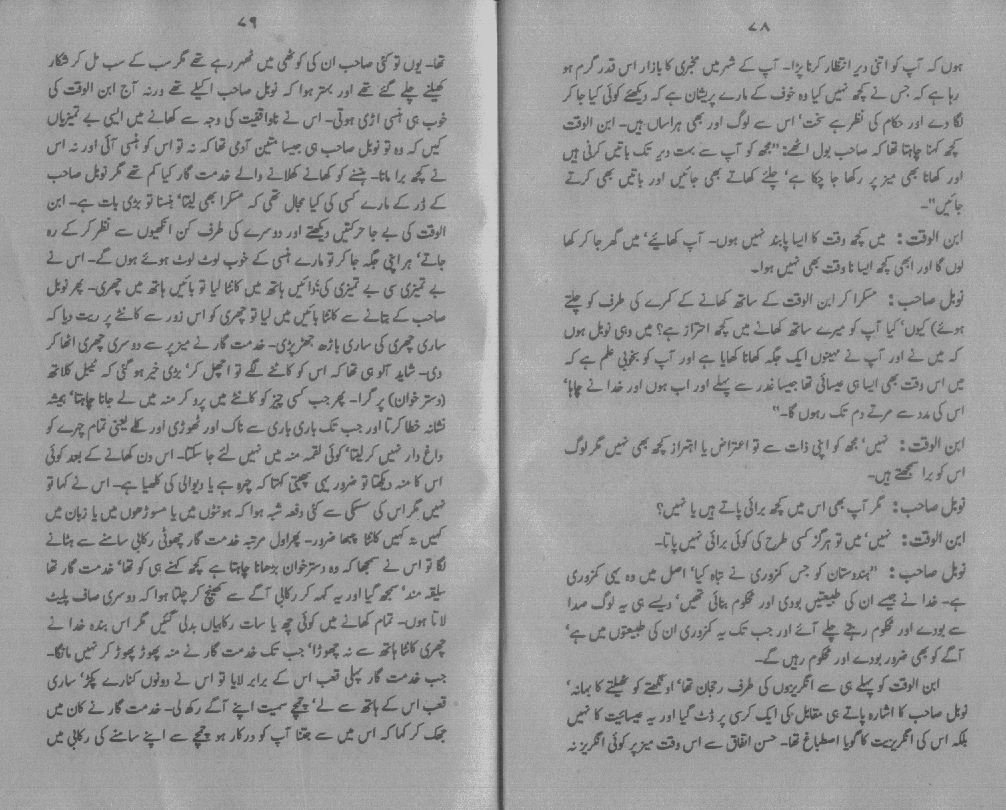 ۷۸
ہوں کہ آپ کو اتنی دیر انتظار کرنا پڑا۔ آپ کے شہر میں مخبری کا بازار اس قدر گرم ہو
رہا ہے کہ جس نے کچھ نہیں کیا وہ خوف کے مارے پریشان ہے کہ دیکھئے کوئی کیا جا کر
لگا دے اور حکام کی نظر ہے سخت، اس سے لوگ اور بھی ہراساں ہیں۔ ابن الوقت
کچھ کہنا چاہتا تھا کہ صاحب بول اٹھے: "مجھ کو آپ سے بہت دیر تک باتیں کرنی ہیں
اور کھانا بھی میز پر رکھا جا چکا ہے، چلئے کھاتے بھی جائیں اور باتیں بھی کرتے
جائیں"۔
ابن الوقت: میں کچھ وقت کا ایسا پابند نہیں ہوں۔ آپ کھائیے، میں گھر جا کر کھا
لوں گا اور ابھی کچھ ایسا نا وقت بھی نہیں ہوا۔
نوبل صاحب: مسکرا کر ابن الوقت کے ساتھ کھانے کے کمرے کی طرف کو چلتے
ہوئے) کیوں، کیا آپ کو میرے ساتھ کھانے میں کچھ احتراز ہے؟ میں وہی نوبل ہوں
کہ میں نے اور آپ نے مہینوں ایک جگہ کھانا کھایا ہے اور آپ کو بخوبی علم ہے کہ
میں اس وقت بھی ایسا ہی عیسائی تھا جیسا غدر سے پہلے اور اب ہوں اور خدا نے چاہا،
اس کی مدد سے مرتے دم تک رہوں گا۔"
ابن الوقت: نہیں، مجھ کو اپنی ذات سے تو اعتراض یا احتراز کچھ بھی نہیں مگر لوگ
اس کو برا سمجھتے ہیں۔
نوبل صاحب: مگر آپ بھی اس میں کچھ برائی پاتے ہیں یا نہیں؟
ابن الوقت: نہیں، میں تو ہرگز کسی طرح کی کوئی برائی نہیں پاتا۔
نوبل صاحب: "ہندوستان کو جس کمزوری نے تباہ کیا، اصل میں وہ یہی کمزوری
ہے۔ خدا نے جیسے ان کی طبیعتیں بودی اور محکوم بنائی تھیں، ویسے ہی یہ لوگ صدا
سے بودے اور محکوم رہتے چلے آئے اور جب تک یہ کمزوری ان کی طبیعتوں میں ہے،
آگے کو بھی ضرور بودے اور محکوم رہیں گے۔
ابن الوقت کو پہلے ہی سے انگریزوں کی طرف رجحان تھا، اونگھتے کو ٹھیلتے کا بہانہ،
نوبل صاحب کا اشارہ پاتے ہی مقابل کی ایک کرسی پر ڈٹ گیا اور یہ عیسائیت کا نہیں
بلکہ اس کی انگریزیت کا گویا اصطباغ تھا۔ حسن اتفاق سے اس وقت میز پر کوئی انگریز نہ
۷۹
تھا۔ یوں تو کئی صاحب ان کی کوٹھی میں ٹھہر رہے تھے مگر سب کے سب مل کر شکار
کھیلنے چلے گئے تھے اور بہتر ہوا کہ نوبل صاحب اکیلے تھے ورنہ آج ابن الوقت کی
خوب ہی ہنسی اڑی ہوتی۔ اس نے ناواقفیت کی وجہ سے کھانے میں ایسی بے تمیزیاں
کیں کہ وہ تو نوبل صاحب ہی جیسا متین آدمی تھا کہ نہ تو اس کو ہنسی آئی اور نہ اس
نے کچھ برا مانا۔ ہنسنے کو کھانے کھلانے والے خدمت گار کیا کم تھے مگر نوبل صاحب
کے ڈر کے مارے کسی کی کیا مجال تھی کہ مسکرا بھی لیتا، ہنسنا تو بڑی بات ہے۔ ابن
الوقت کی بے جا حرکتیں دیکھتے اور دوسرے کی طرف کن انکھیوں سے نظر کر کے رہ
جاتے، ہر اپنی جگہ جا کر تو مارے ہنسی کے خوب لوٹ لوٹ ہوئے ہوں گے۔ اس نے
بے تمیزی سی بے تمیزی کی، دائیں ہاتھ میں کانٹا لیا تو بائیں ہاتھ میں چھری۔ پھر نوبل
صاحب کے بتانے سے کانٹا بائیں میں لیا تو چھری کو اس زور سے کانٹے پر ریت دیا کہ
ساری چھری کی ساری باڑھ جھڑ پڑی۔ خدمت گار نے میز پر سے دوسری چھری اٹھا کر
دی۔ شاید آلو ہی تھا کہ اس کو کاٹنے لگے تو اچھل کر، بڑی خیر ہو گئی کہ ٹیبل کلاتھ
(دستر خوان) پر گرا۔ پھر جب کسی چیز کو کانٹے میں پرو کر منہ میں لے جانا چاہتا، ہمیشہ
نشانہ خطا کرتا اور جب تک باری باری سے ناک اور ٹھوڑی اور کلے یعنی تمام چہرے کو
داغ دار نہیں کر لیتا، کوئی لقمہ منہ میں نہیں لئے جا سکتا۔ اس دن کھانے کے بعد کوئی
اس کا منہ دیکھتا تو ضرور یہی پھبتی کہتا کہ چہرہ ہے یا دیوالی کی کلھیا ہے۔ اس نے کہا تو
نہیں مگر اس کی سسکی سے کئی دفعہ شبہ ہوا کہ ہونٹوں میں یا مسوڑھوں میں یا زبان میں
کہیں نہ کہیں کانٹا چبھا ضرور۔ پھر اول مرتبہ خدمت گار چھوٹی رکابی سامنے سے ہٹانے
لگا تو اس نے سمجھا کہ وہ دستر خوان بڑھانا چاہتا ہے کچھ کہنے ہی کو تھا، خدمت گار تھا
سلیقہ مند، سمجھ گیا اور یہ کہہ کر رکابی آگے سے کھینچ کر چلتا ہوا کہ دوسری صاف پلیٹ
لاتا ہوں۔ تمام کھانے میں کوئی چھ یا سات رکابیاں بدلی گئیں مگر اس بندہ خدا نے
چھری کانٹا ہاتھ سے نہ چھوڑا، جب تک خدمت گار نے منہ پھوڑ پھوڑ کر نہیں مانگا۔
جب خدمت گار پہلی قعب اس کے برابر لایا تو اس نے دونوں کنارے پکڑ، ساری
قعب اس کے ہاتھ سے لے، چمچے سمیت اپنے آگے رکھ لی۔ خدمت گار نے کان میں
جھک کر کہا کہ اس میں سے جتنا آپ کو درکار ہو چمچے سے اپنے سامنے کی رکابی میں